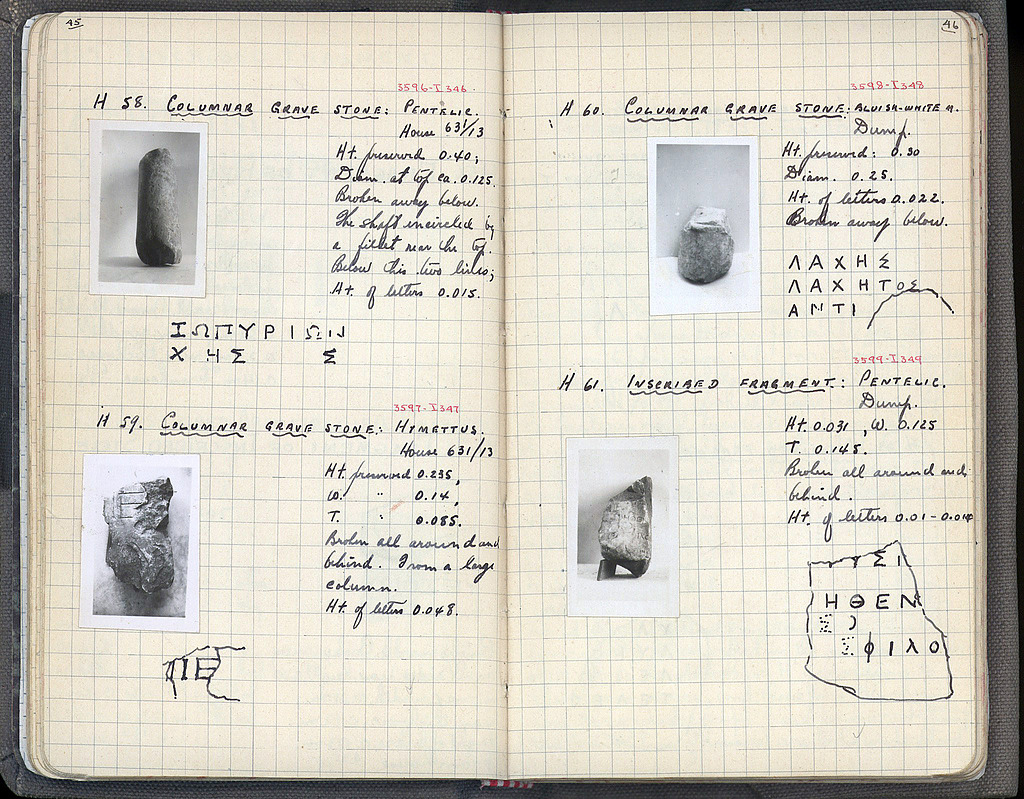 45
3596-I 346
H 58. COLUMNAR GRAVE STONE: PENTELIC.
House 631/13
Ht. preserved 0.40;
Diam. at top ca. 0.125.
Broken away below.
The shaft encircled by
a fillet near the top.
Below this two lines;
Ht. of letters 0.015.
ΙΩΠΥΡΙΩΝ
ΧΗΣ Σ
3597-I 347
H 59. COLUMNAR GRAVE STONE: HYMETTUS.
House 631/13
Ht. preserved 0.235,
W. " 0.14,
T. " 0.085.
Broken all around and
behind. From a large
column.
Ht. of letters 0.048.
ΠΕ
46
3598-I 348
H 60. COLUMNAR GRAVE STONE: BLUISH-WHITE M.
Dump.
Ht. preserved: 0.30
Diam. 0.25.
Ht. of letters 0.022.
Broken away below.
ΛΑΧΗΣ
ΛΑΧΗΤΟΣ
ΑΝΤΙ
3599-I 349
H 61. INSCRIBED FRAGMENT: PENTELIC.
Dump.
Ht. 0.031, W. 0.125
T. 0.145.
Broken all around and
behind.
Ht. of letters 0.01-0.014
ΥΣΙ
ΗΘΕΝ
Σ
ΣΦΙΛΟ